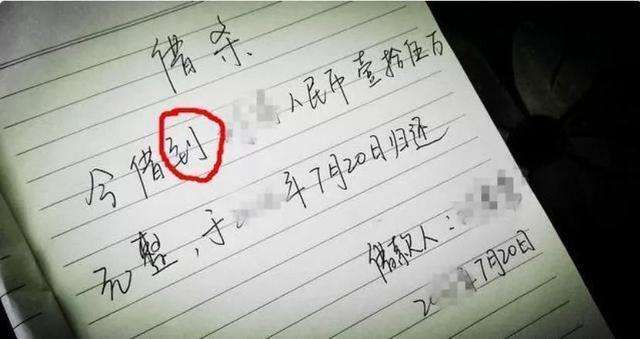 借条
今借到人民币壹拾伍万
元整，于年7月20日归还
借款人：
2 7月20日